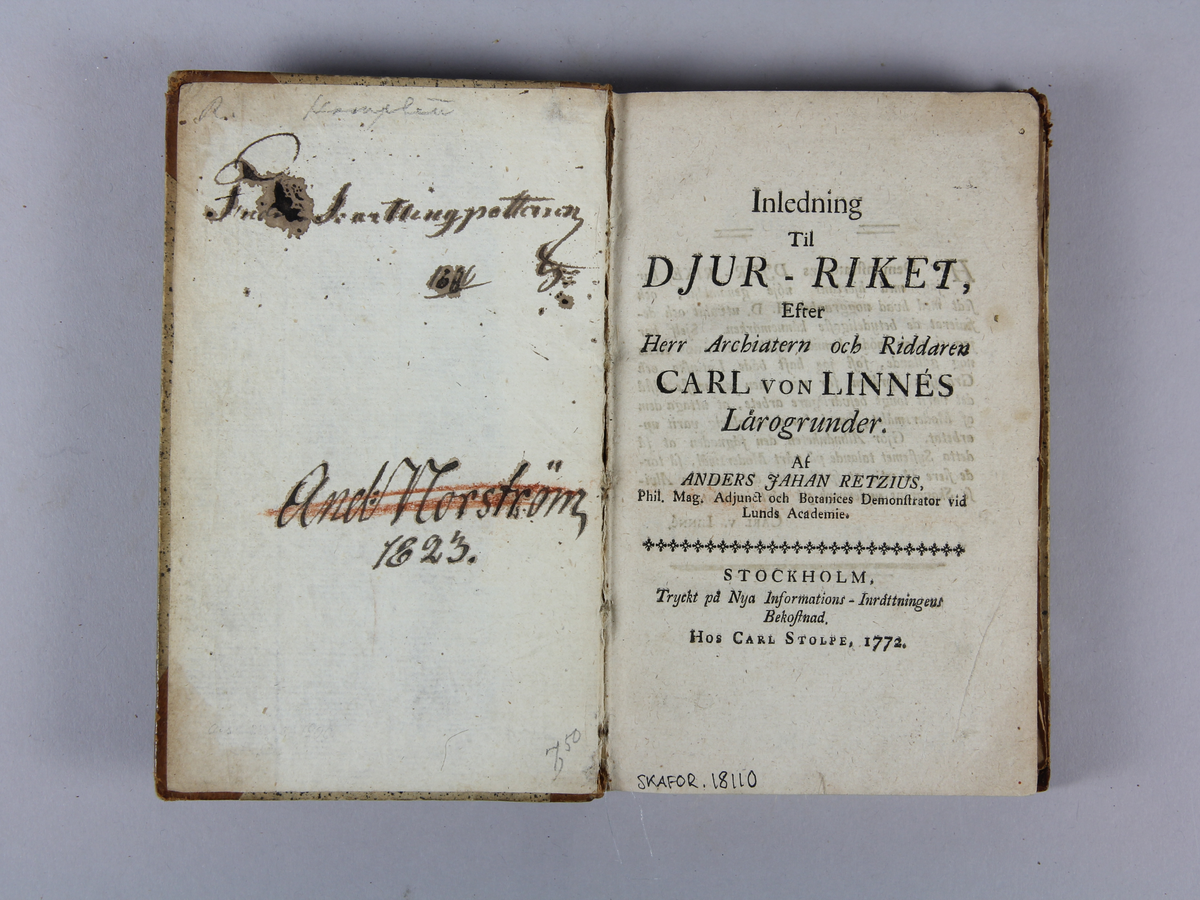 R. Komplett
And: Norström,
1823.
7 50
Inledning
Til
DJUR - RIKET,
Efter
Herr Archiatern och Riddaren
CARL VON LINNÉS
Lårogrunder.
Af
ANDERS JAHAN RETZIUS,
Phil. Mag. Adjunct och Botanices Demonſtrator vid
Lunds Academie.
STOCKHOLM,
Tryckt på Nya Informations - Inråttningens
Bekoſtnad,
HOS CARL STOLPE, 1772.
SKAFOR. 18110